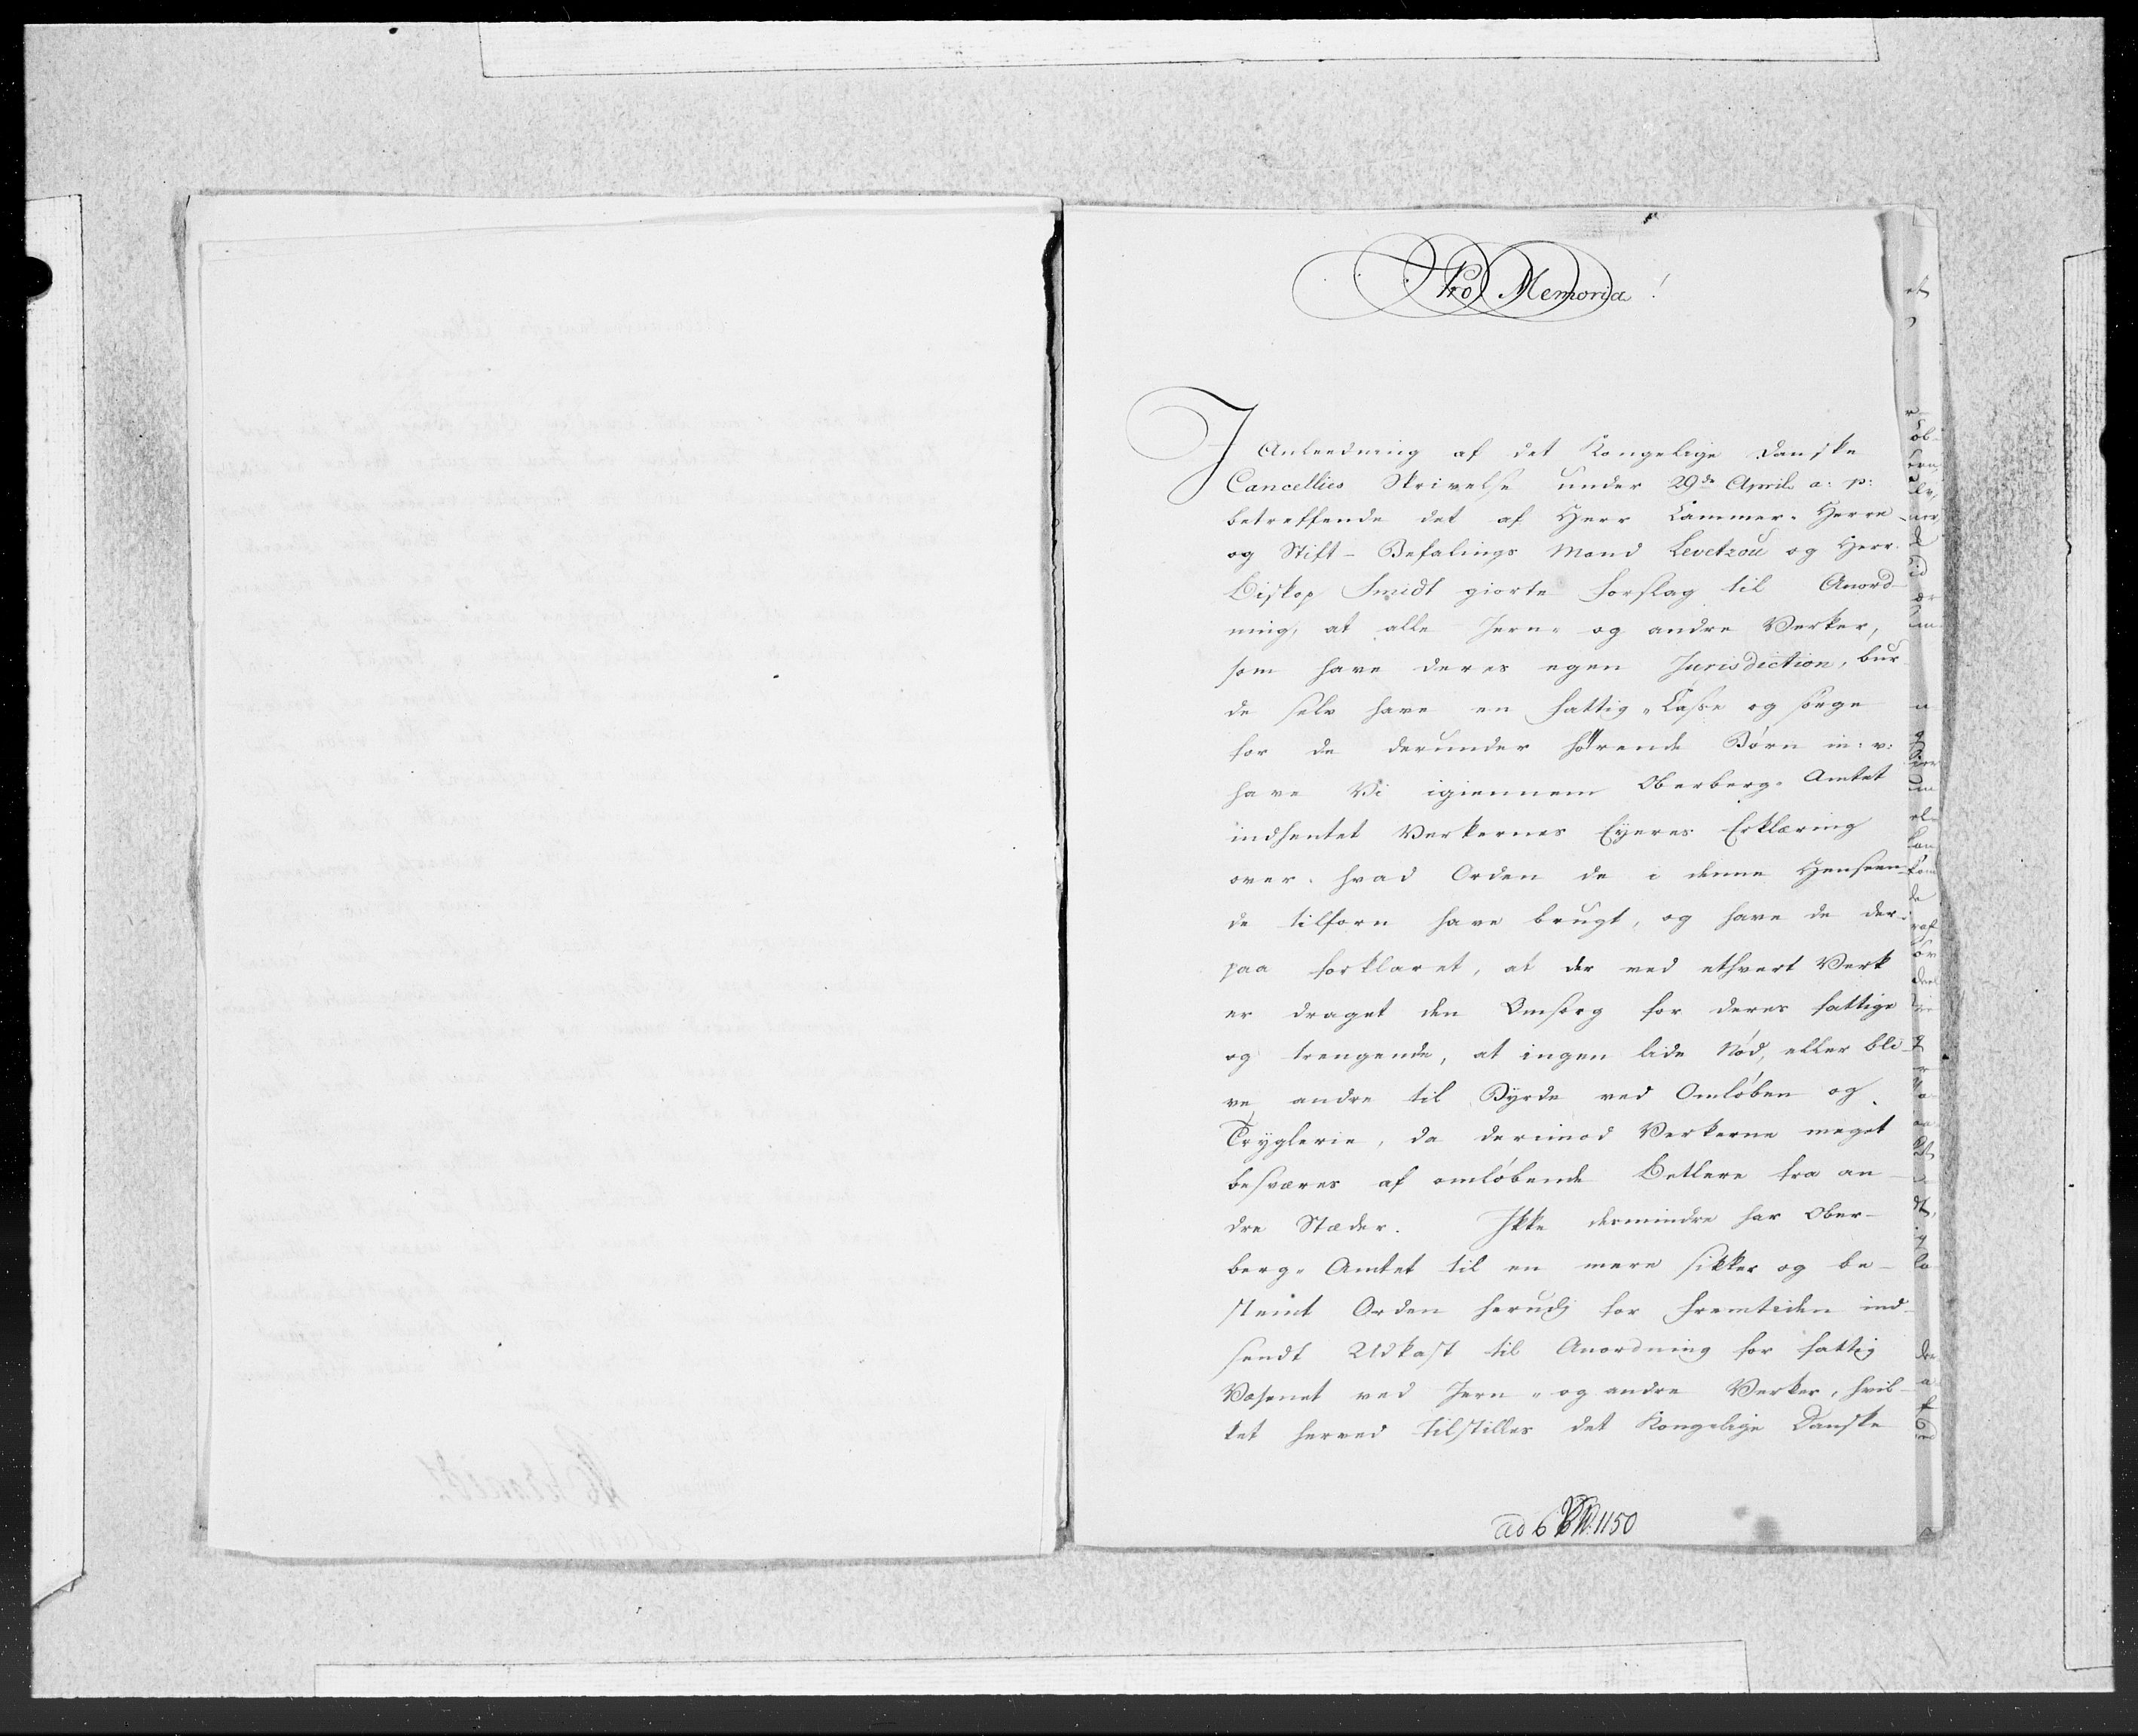 Pro Memoria!
I Anleedning af det Kongelige danske
Cancellies Skrivelse under 29de April a: p:
betreffende det af Herr Cammer-Herre
og Stift-Befalings Mand Levetzou og Herr
Biskop Smidt giorte Forslag til Anord-
ning, at alle Jern- og andre Verker,
som have deres egen Jurisdiction, bur-
de selv have en Fattig-Casse og sørge
for de derunder hørende Børn m: v:
have Vi igiennem Oberberg-Amtet
indhentet Verkernes Eyeres Erklæring
over, hvad Orden de i denne Henseen-
de tilforn have brugt, og have de der-
paa forklaret, at der ved ethvert Verk
er draget den Omsorg for deres fattige
og trengende, at ingen lide Nød, eller bli-
ve andre til Byrde ved Omløben og
Tryglerie, da derimod Verkerne meget
besværes af omløbende Betlere fra an-
dre Stæder. Ikke dermindre har Ober-
berg-Amtet til en mere sikker og be-
stemt Orden herudj for Fremtiden ind-
sendt Udkast til Anordning for Fattig
Væsenet ved Jern- og andre Verker, hvil-
ket herved tilstilles det Kongelige Danske
ad 6 N: 1150